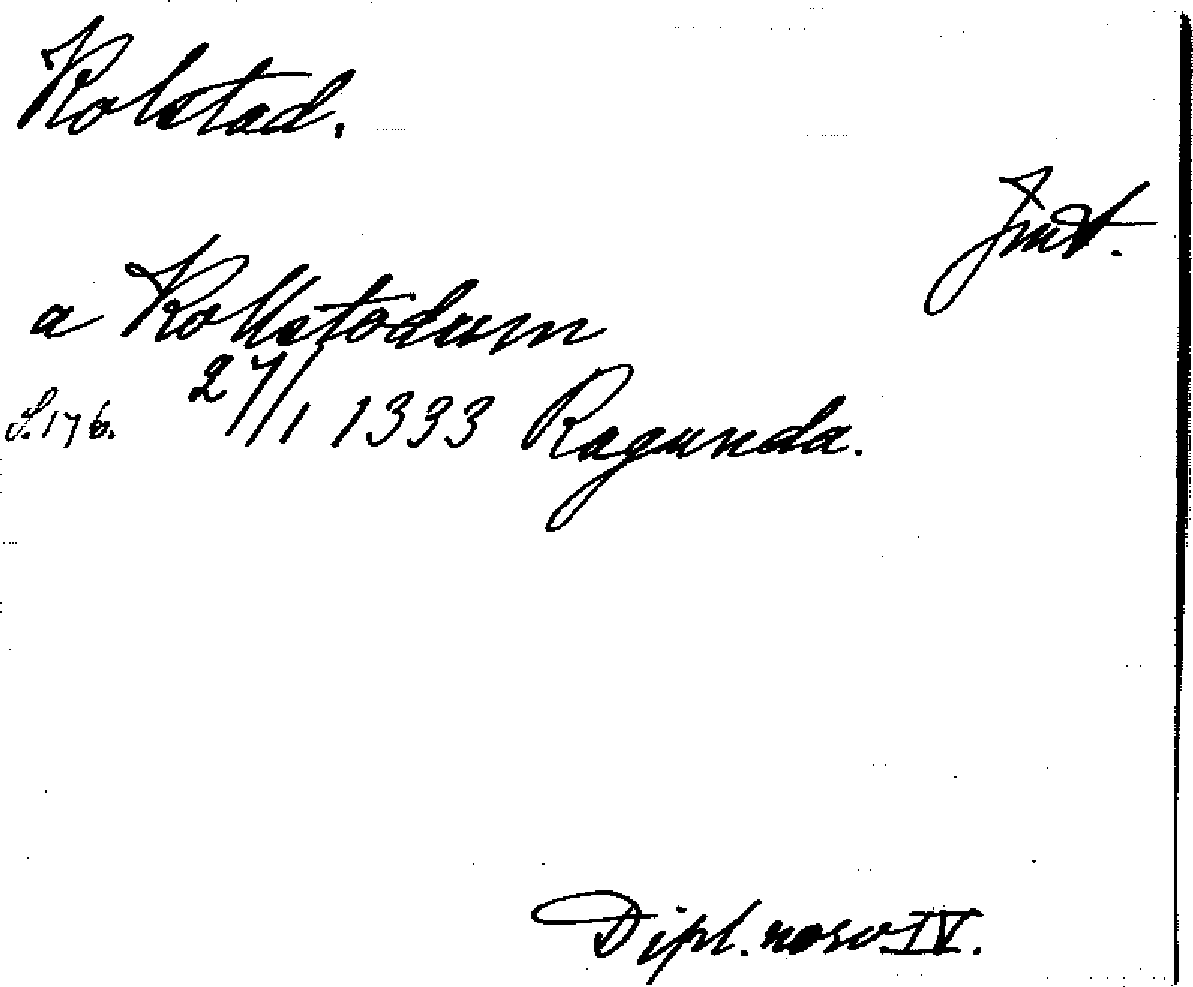 Kolstad.
Jmt.
a Kollstodum
S. 176. 27/1 1333 Ragunda.
Dipl. norv. IV.